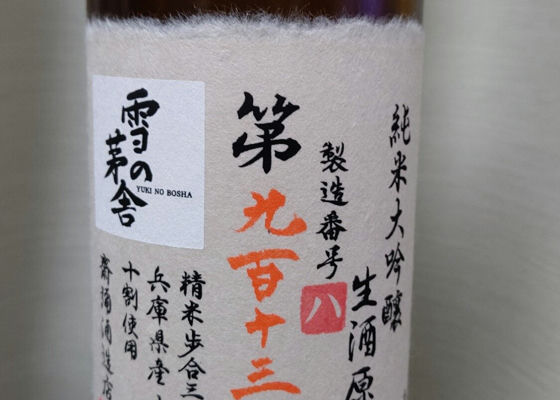 純米大吟醸
生酒原
製造番号
八
第九百十三
雪の
茅舎
YUKI NO BOSHA
精米歩合三
兵庫県産
十割使用
齋彌酒造店